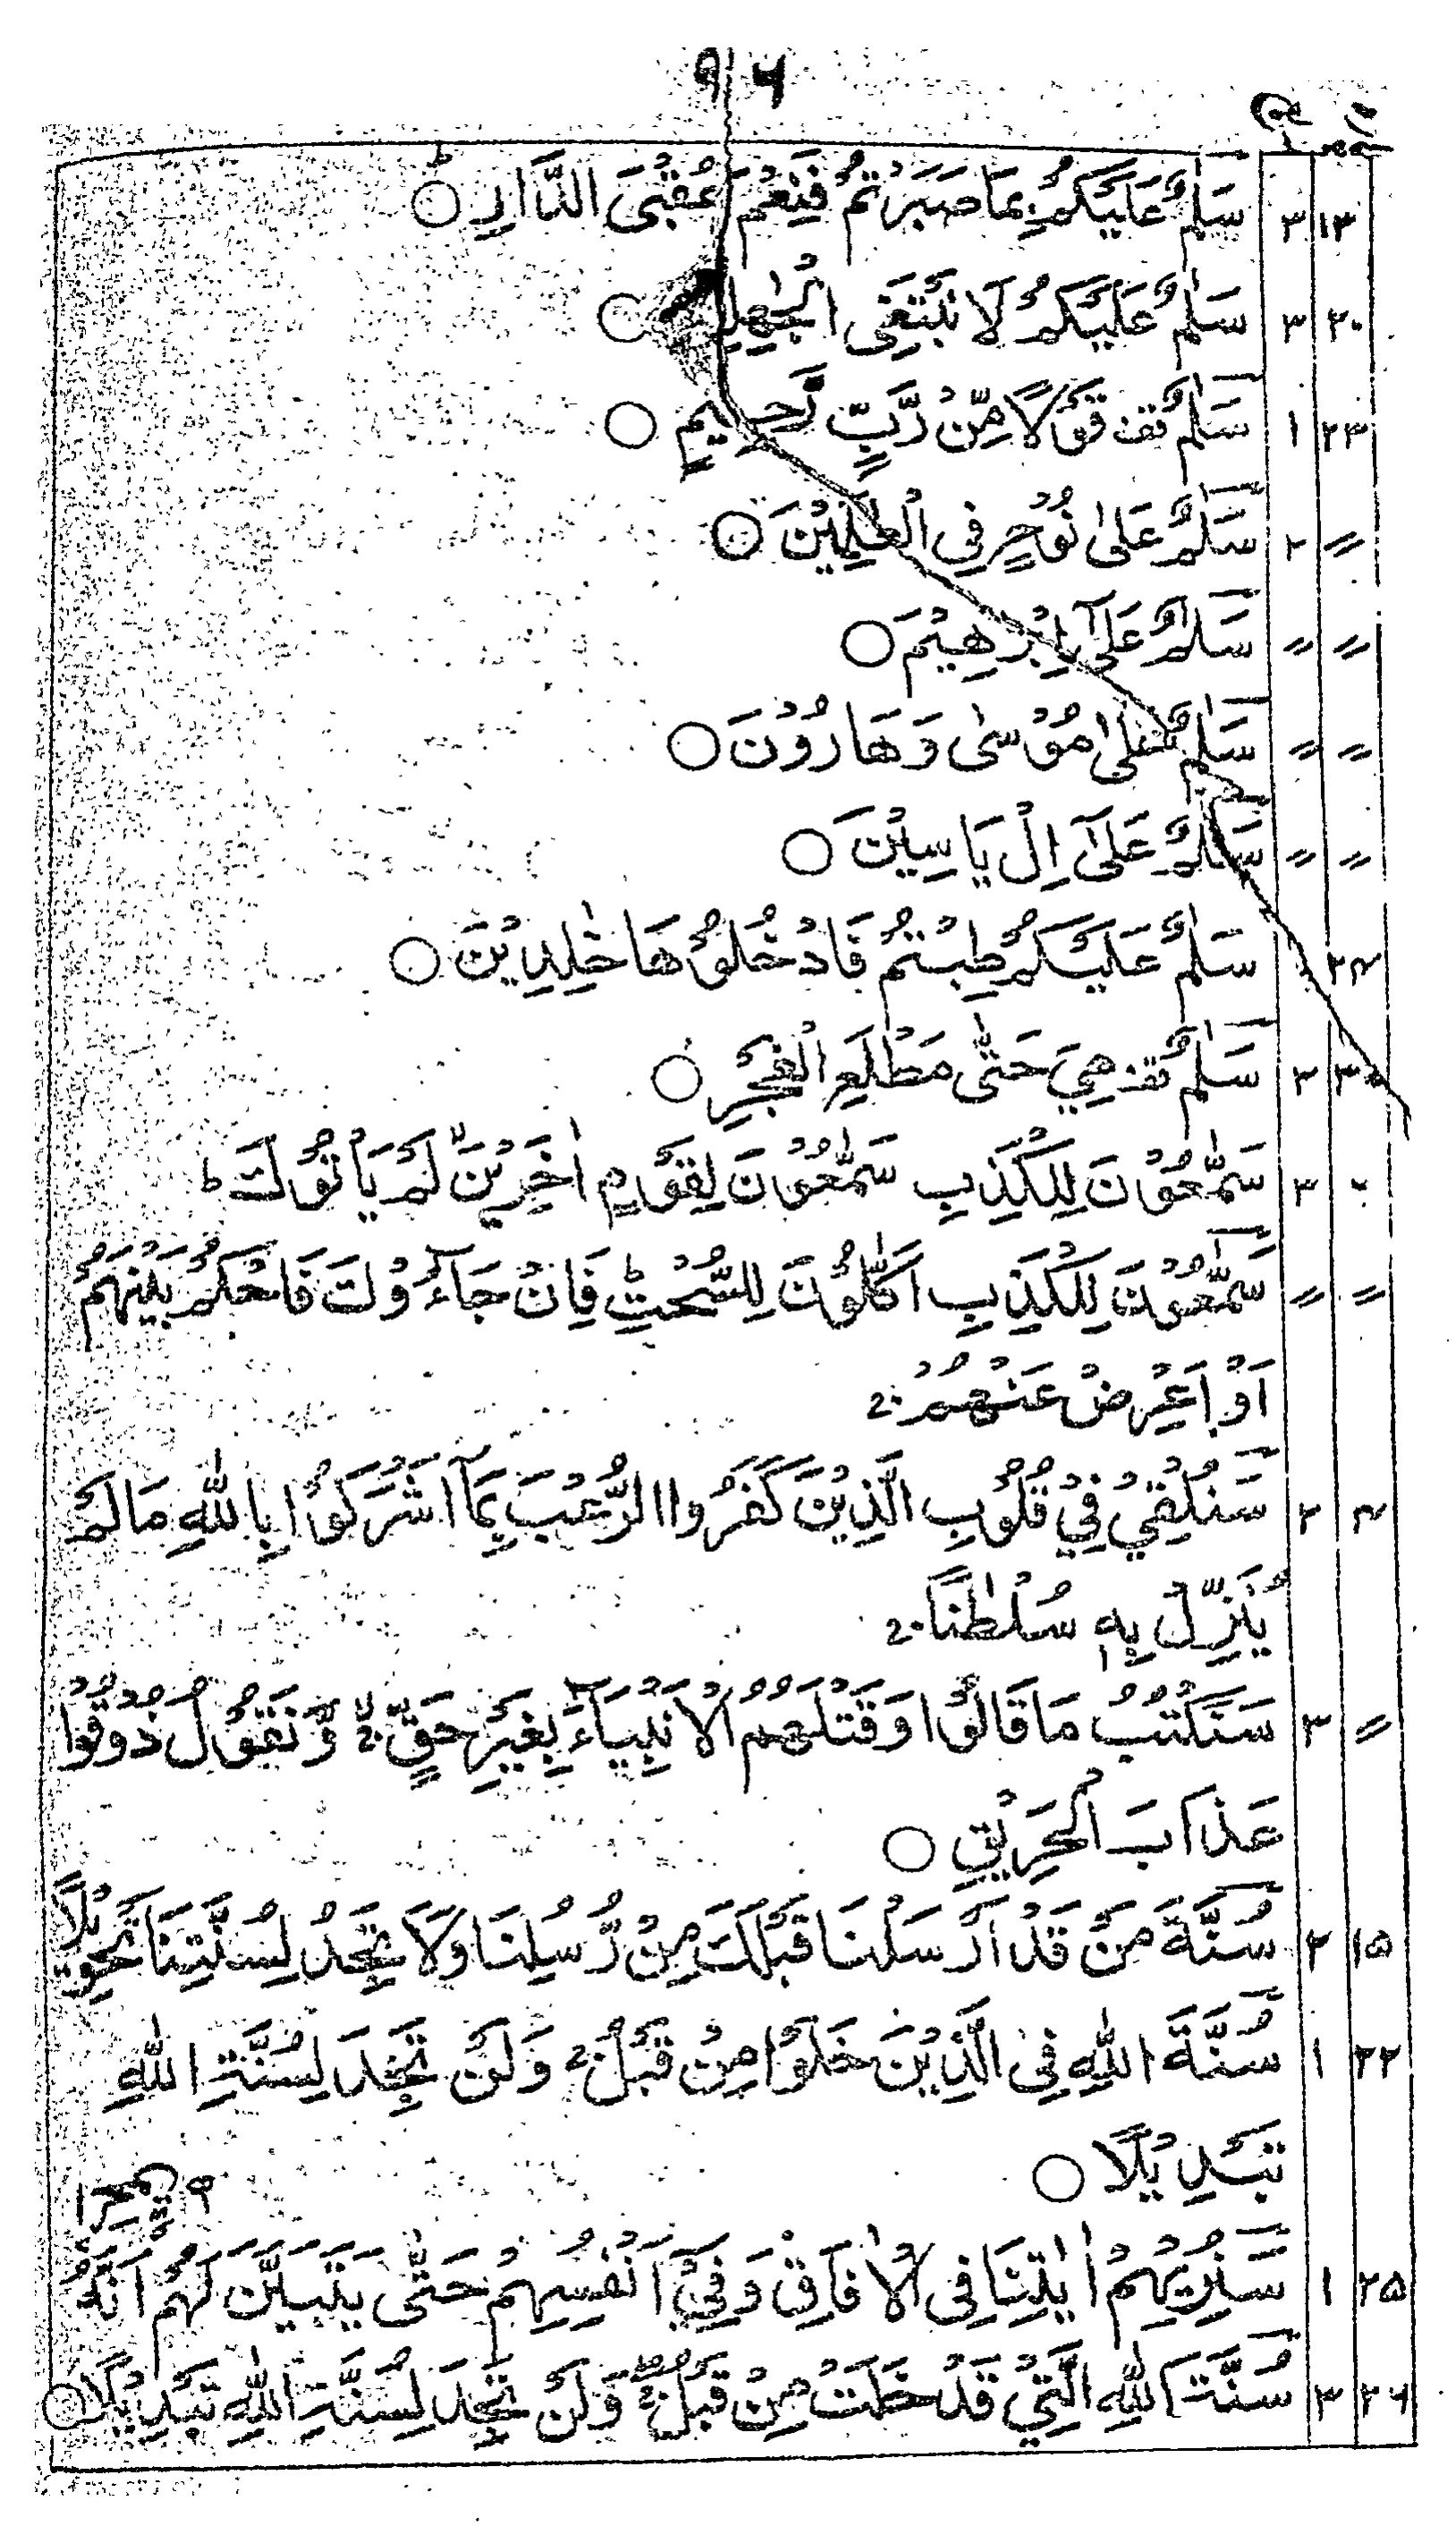 ۹۶
۱۳ ۳ سَلٰمٌ عَلَيْكُمْ بِمَا صَبَرْتُمْ فَنِعْمَ عُقْبَى الدَّارِ ○ ط
۲۰ ۳ سَلٰمٌ عَلَيْكُمْ لَا نَبْتَغِى الْجٰهِلِيْنَ ○
۲۳ ۱ سَلٰمٌ قف قَوْلًا مِّنْ رَّبٍّ رَّحِيْمٍ ○
〃 ۲ سَلٰمٌ عَلٰى نُوْحٍ فِى الْعٰلَمِيْنَ ○
〃 〃 سَلٰمٌ عَلٰٓى اِبْرٰهِيْمَ ○
〃 〃 سَلٰمٌ عَلٰى مُوْسٰى وَهَارُوْنَ ○
〃 〃 سَلٰمٌ عَلٰٓى اِلْ يَاسِيْنَ ○
۲۴ سَلٰمٌ عَلَيْكُمْ طِبْتُمْ فَادْخُلُوْهَا خٰلِدِيْنَ ○
۳۰ ۳ سَلٰمٌ قف هِيَ حَتّٰى مَطْلَعِ الْفَجْرِ ○
۳ سَمّٰعُوْنَ لِلْكَذِبِ سَمّٰعُوْنَ لِقَوْمٍ اٰخَرِيْنَ لا لَمْ يَاْتُوْكَ ط
〃 〃 سَمّٰعُوْنَ لِلْكَذِبِ اَكّٰلُوْنَ لِلسُّحْتِ ط فَاِنْ جَآءُوْكَ فَاحْكُمْ بَيْنَهُمْ
اَوْ اَعْرِضْ عَنْهُمْ ج
۴ ۲ سَنُلْقِيْ فِيْ قُلُوْبِ الَّذِيْنَ كَفَرُوا الرُّعْبَ بِمَآ اَشْرَكُوْا بِاللّٰهِ مَا لَمْ
يُنَزِّلْ بِهٖ سُلْطٰنًا ج
〃 ۳ سَنَكْتُبُ مَا قَالُوْا وَقَتْلَهُمُ الْاَنْبِيَآءَ بِغَيْرِ حَقٍّ لا وَّنَقُوْلُ ذُوْقُوْا
عَذَابَ الْحَرِيْقِ ○
۱۵ ۲ سُنَّةَ مَنْ قَدْ اَرْسَلْنَا قَبْلَكَ مِنْ رُّسُلِنَا وَلَا تَجِدُ لِسُنَّتِنَا تَحْوِيْلًا
۲۲ ۱ سُنَّةَ اللّٰهِ فِى الَّذِيْنَ خَلَوْا مِنْ قَبْلُ ج وَلَنْ تَجِدَ لِسُنَّةِ اللّٰهِ
تَبْدِيْلًا ○
۲۵ ۱ سَنُرِيْهِمْ اٰيٰتِنَا فِى الْاٰفَاقِ وَفِيْٓ اَنْفُسِهِمْ حَتّٰى يَتَبَيَّنَ لَهُمْ اَنَّهُ الْحَقُّ
۲۶ ۳ سُنَّةَ اللّٰهِ الَّتِيْ قَدْ خَلَتْ مِنْ قَبْلُ ج وَلَنْ تَجِدَ لِسُنَّةِ اللّٰهِ تَبْدِيْلًا ○